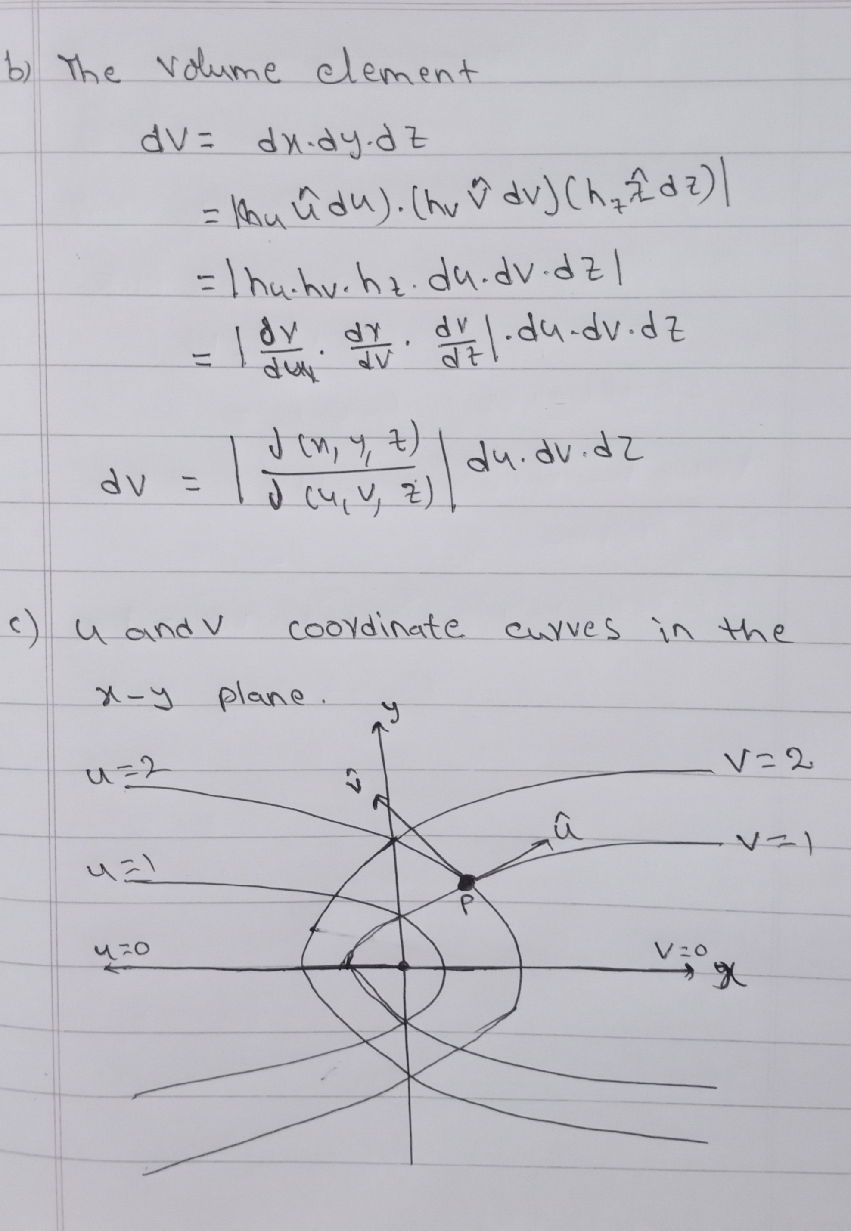 b) The volume element
dV = dx.dy.dz
= |(hu û du).(hv v̂ dv)(hz ẑ dz)|
= |hu.hv.hz.du.dv.dz|
= |∂r/du . dr/dv . dr/dz|.du.dv.dz
dv = |∂(x, y, z)/∂(u, v, z)| du.dv.dz
c) u and v coordinate curves in the
x-y plane.
y
u=2
v=2
v̂
û
u=1
v=1
P
u=0
v=0
x